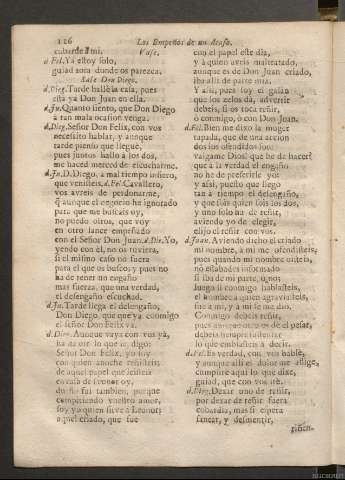 126 Los Empeños de un Acaso.
cubarde à mi. Vase.
d. Fel. Ya estoy solo,
guiad aora dunde os parezca.
Sale Don Diego.
d. Dieg. Tarde hallè la casa, pues
está ya Don Juan en ella.
d. Ju. Quanto siento, que Don Diego
à tan mala ocasion venga.
d. Dieg. Señor Don Felix, con vos
necessito hablar, y aunque
tarde pienso que llegue,
pues juntos hallo a los dos,
me haced merced de escucharme.
d. Ju. D. Diego, à mal tiempo
que venisteis. d. Fel. Cavallero,
vos aveis de perdonarme,
q̃ aunque el negocio he ignorado
para que me buscais oy,
no puedo otros, que voy
en otro lance empeñado
con el Señor Don Juan. d. Die. Yo,
yendo con el, no os tuviera,
si el mismo caso no fuera
para el que os busco; y pues no
ha de tener un engaño
mas fuerza, que una verdad,
el desengaño escuchad.
d. Ju. Tarde llega el desengaño,
Don Diego, que ya conmigo
el señor Don Felix va.
d. Dieg. Aunque vaya con vos ya,
ha de oir lo que le digo:
Señor Don Felix, yo soy
con quien anoche reñisteis;
de aquel papel que
en casa de Leonor oy,
dueño fui tambien, porque
compitiendo vuestro amor,
soy yo quien sirve à Leonor;
aquel criado, que fue
con el papel este dia,
y à quien aveis maltratado,
aunque es de Don Juan criado,
iba alli de parte mia.
Y assi, pues soy el galàn
que los zelos dà, advertir
debeis, si os toca reñir,
ò conmigo, ò con Don Juan.
d. Fel. Bien me dixo la muger
tapada, que de una accion
dos los ofendidos son:
valgame Dios! que he de hacer?
que à la verdad el engaño
no he de preferirle yo;
y assi, puesto que llegò
tan à tiempo el desengaño,
y que sois quien sois los dos,
y uno solo ha de reñir,
aviendo yo de elegir,
elijo el reñir con vos.
d. Juan. Aviendo dicho el criado
mi nombre, à mi me ofendisteis,
pues quando mi nombre oisteis,
no estabades informado
si iba de mi parte, ò no:
luego si conmigo hablasteis,
el hombre à quien agraviasteis,
fue à mi, y à mi se me diò.
Conmigo debeis reñir,
pues aunque otro es de el pesar,
debeis siempre sustentar
lo que embiasteis à decir.
d. Fel. Es verdad, con vos hable,
y aunque alli el dolor me aflige,
cumplire aqui lo que dixe,
guiad, que con vos irè.
d. Dieg. Dexar uno de reñir,
por dexar de reñir fuera
cobardia, mas si espera
sanear, y desmentir,
riñen-